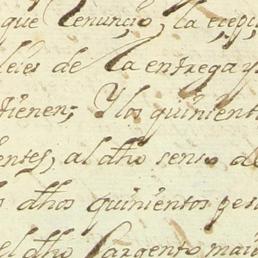 que renunçio, la eçepç
leies de la entrega y
tienen; Y los quinient
entes, al dho senso de
dhos quinientos pes
el dho Sargento maio